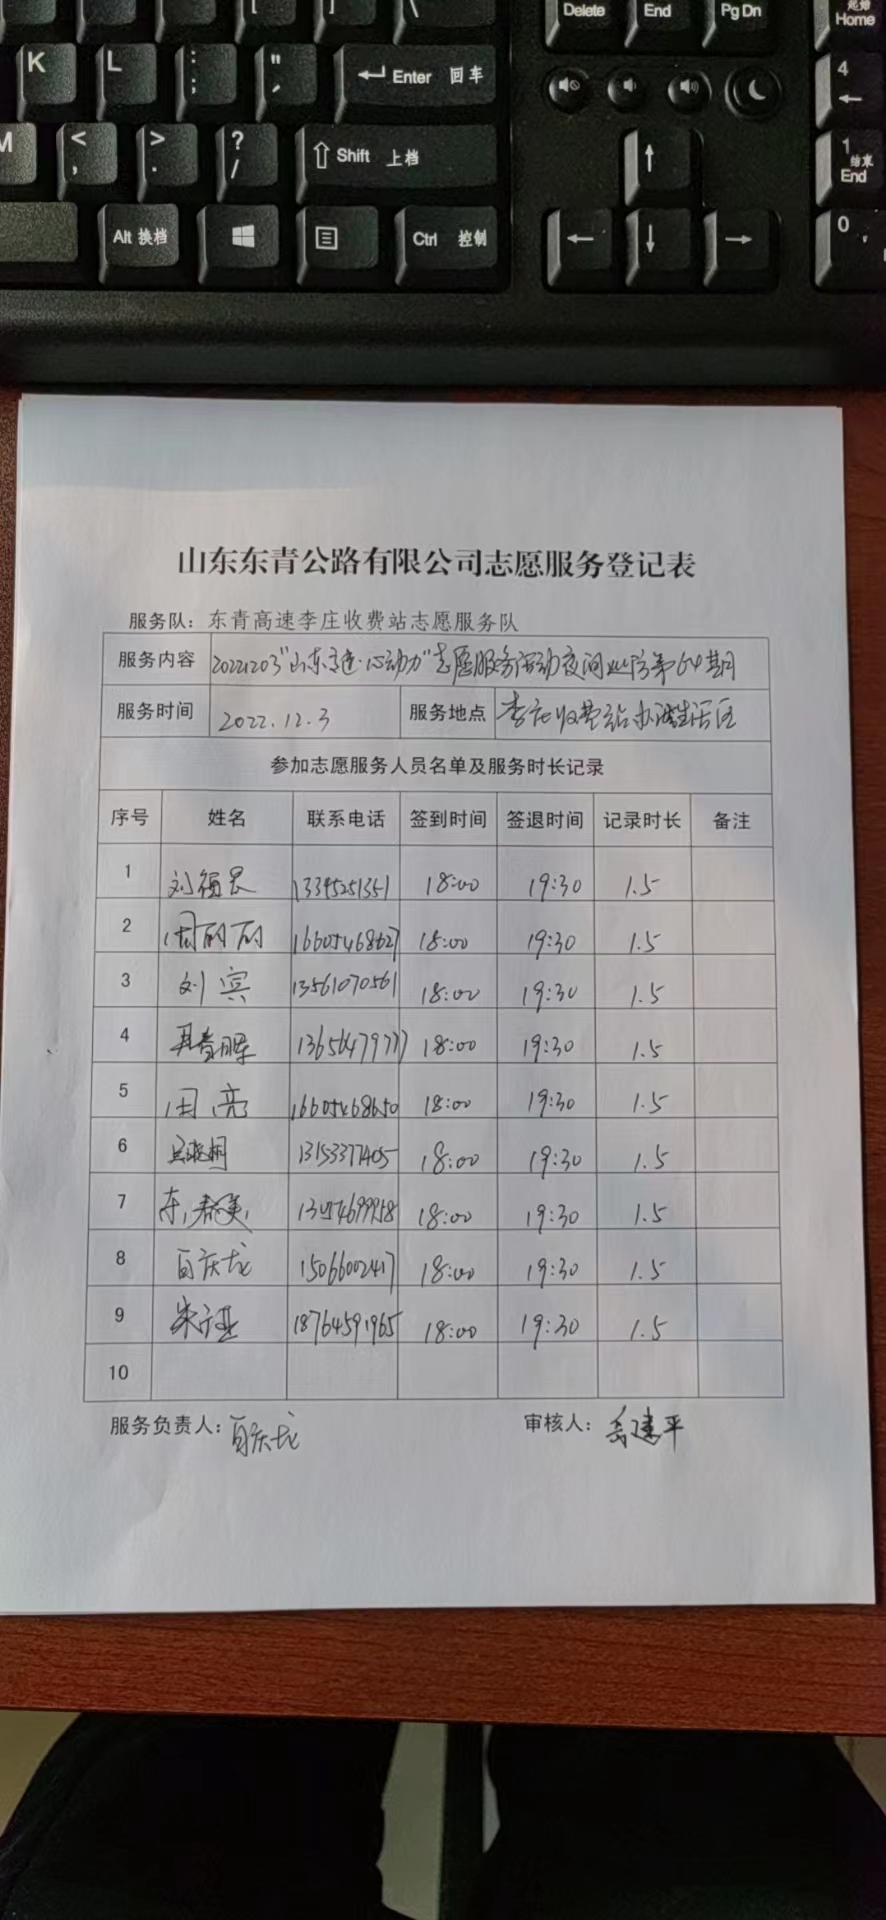 [ ] \ Delete End Pg Dn 起始 Home
K L : ; " ' Enter 回车 4
M < , > . ? / Shift 上档 1 结束 End
Alt 换档 Ctrl 控制 0
山东东青公路有限公司志愿服务登记表
服务队：东青高速李庄收费站志愿服务队
服务内容 20221203"山东高速·心动力"志愿服务活动夜间 第64期
服务时间 2022.12.3 服务地点 李庄收费站办 生活区
参加志愿服务人员名单及服务时长记录
序号 姓名 联系电话 签到时间 签退时间 记录时长 备注
1 刘 13395251351 18:00 19:30 1.5
2 周丽丽 16605468627 18:00 19:30 1.5
3 刘宾 13561070561 18:00 19:30 1.5
4 18:00 19:30 1.5
5 田亮 16605468650 18:00 19:30 1.5
6 13153377405 18:00 19:30 1.5
7 18:00 19:30 1.5
8 百庆龙 15066002417 18:00 19:30 1.5
9 宋 18764591965 18:00 19:30 1.5
10
服务负责人：百庆龙 审核人：岳建平